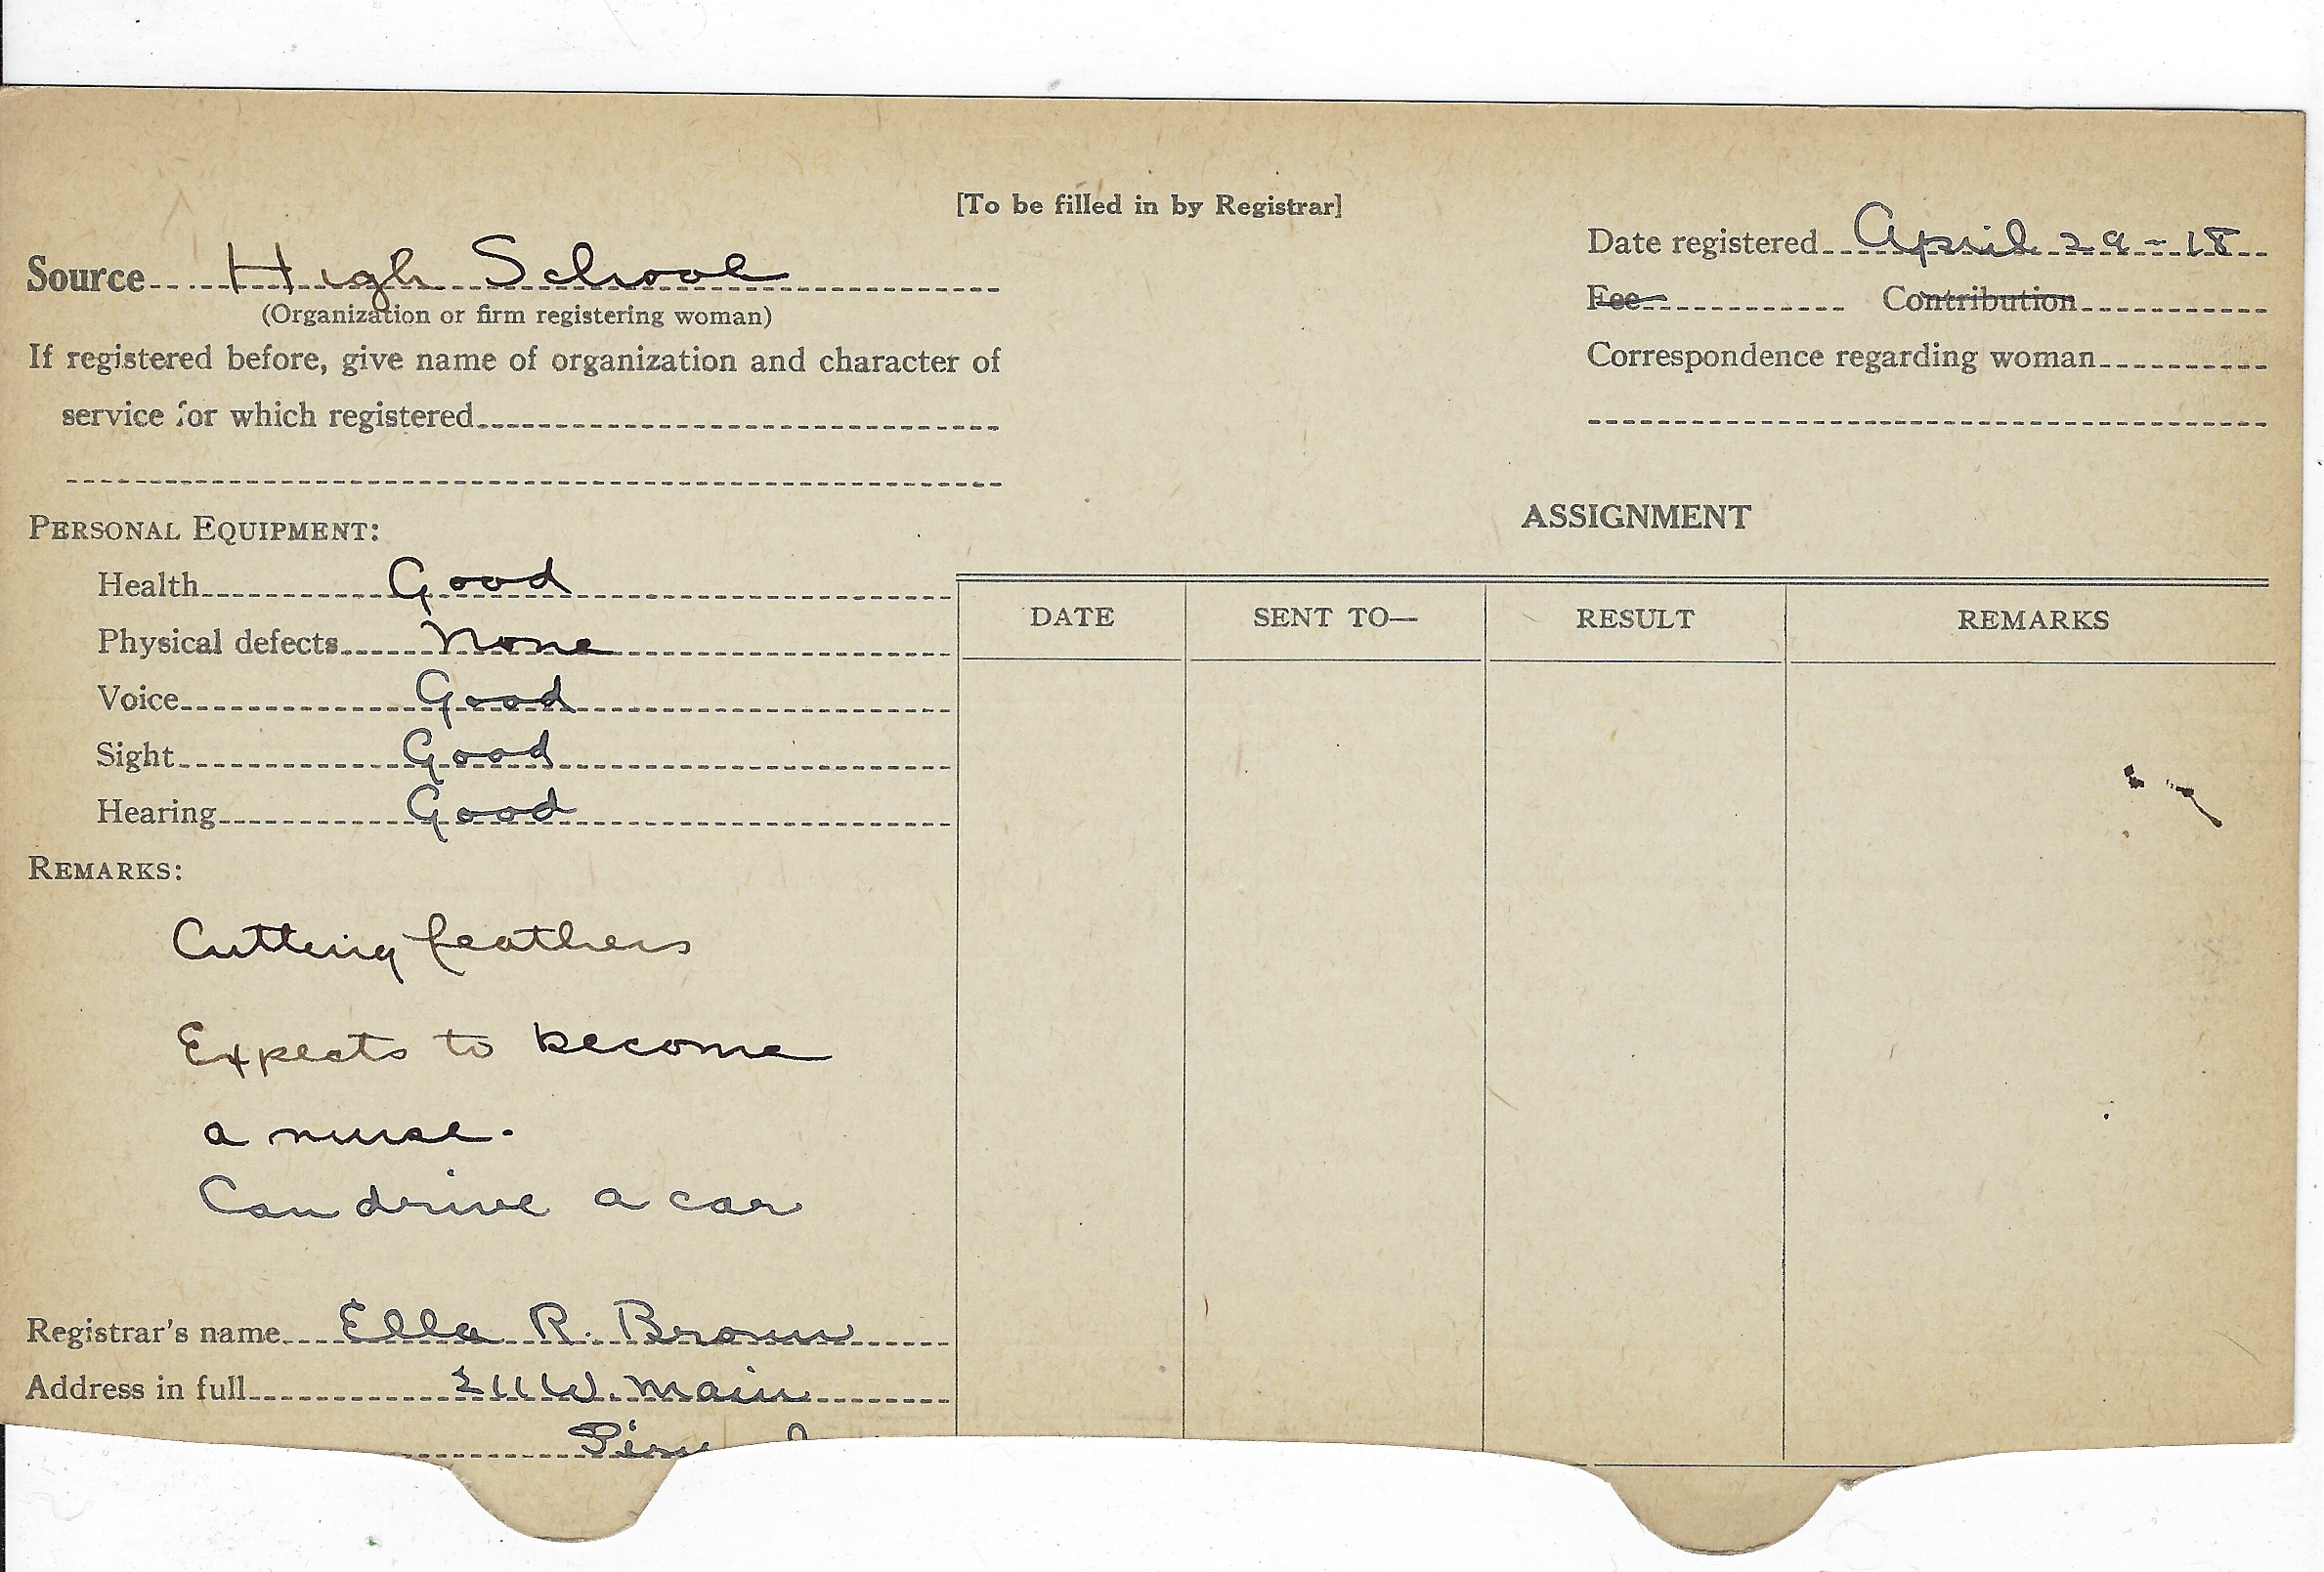 [To be filled in by Registrar]
Source High School
(Organization or firm registering woman)
If registered before, give name of organization and character of
service for which registered
Date registered April 29-18
Fee Contribution
Correspondence regarding woman
PERSONAL EQUIPMENT:
Health Good
Physical defects None
Voice Good
Sight Good
Hearing Good
REMARKS:
Cutting feathers
Expects to become
a nurse.
Can drive a car
Registrar's name Ella R. Brown
Address in full 211 W. Main
ASSIGNMENT
DATE SENT TO— RESULT REMARKS